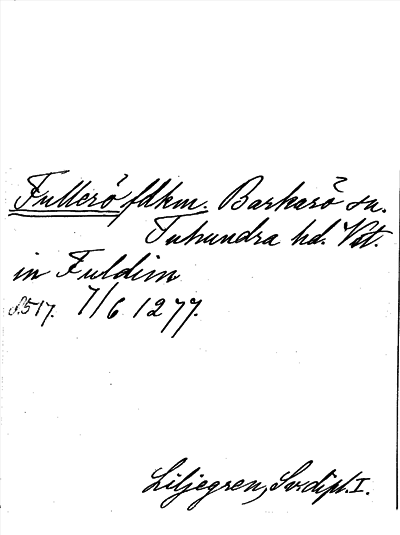 Fullerö fdkm. Barkarö sn.
Tuhundra hd. Vstt.
in Fuldim
s. 517. 7/6 1277.
Liljegren, Sv. dipl. I.